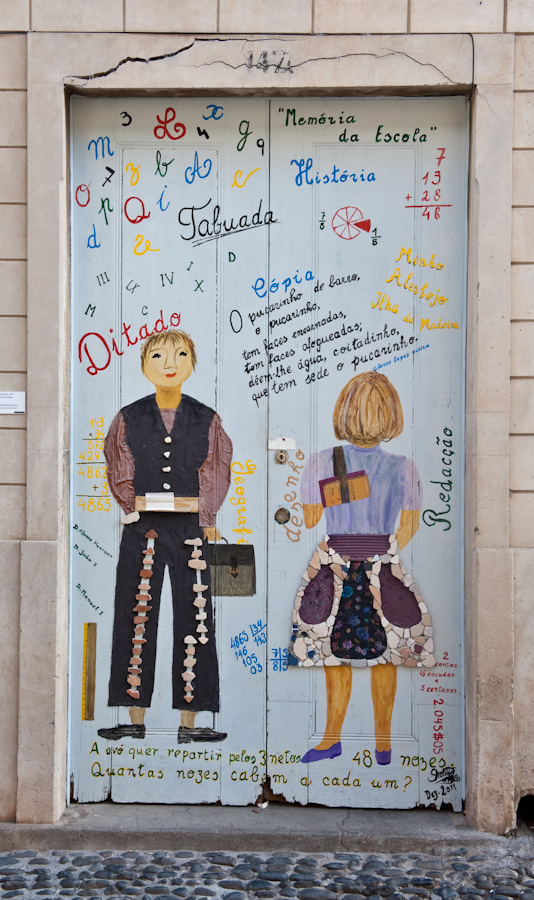 147
3 L x
m 4 g 9
7 z b A
o p Q i e
d
e
"Memória
da Escola"
7
13
+ 28
48
História
7/8
1/8
Tabuada
D
III IV I
X
M C
Minho
Alentejo
Ilha da Madeira
Cópia
O pucarinho de barro,
o pucarinho,
tem faces encarnadas,
tem faces afogueadas;
dêem-lhe água, coitadinho,
que tem sede o pucarinho.
Afonso Lopes Vieira
Ditado
149
4863
4865
Geografia
desenho
Redacção
D. Afonso Henriques
D. João I
D. Manuel I
4865 34
146 143
105
03
2 contos,
e
5 centavos
2.045$05
A avó quer repartir pelos 3 netos 48 nozes
Quantas nozes cabem a cada um?
Dez. 2011